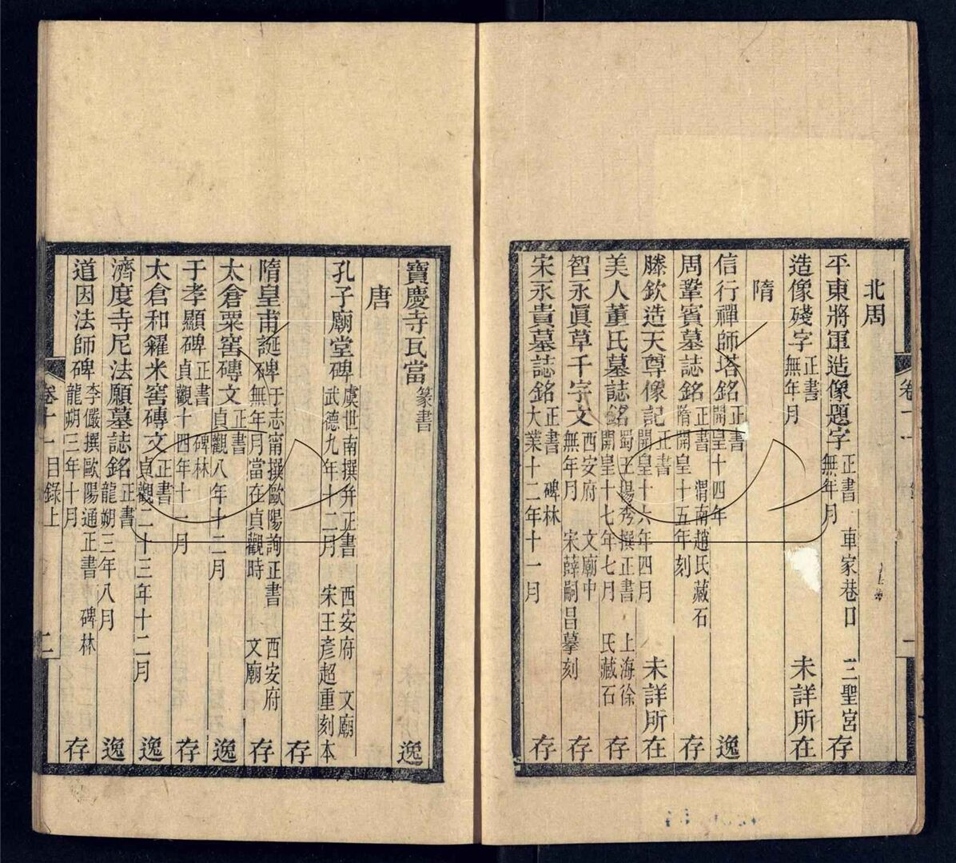 北周
平東將軍造像題字 正書 無年月 車家巷口 二聖宮 存
造像殘字 正書 無年月 未詳所在
隋
信行禪師塔銘 正書 開皇十四年 逸
周鞏賓墓誌銘 正書 隋開皇十五年刻 渭南趙氏藏石 存
滕欽造天尊像記 正書 開皇十六年四月 未詳所在
美人董氏墓誌銘 蜀王楊秀撰正書 開皇十七年七月 上海徐氏藏石 存
智永眞草千字文 無年月 西安府文廟中 宋薛嗣昌摹刻 存
宋永貴墓誌銘 正書 大業十二年十一月 碑林 存
卷十一
寶慶寺瓦當 篆書 逸
唐
孔子廟堂碑 虞世南撰并正書 武德九年十二月 西安府文廟 宋王彥超重刻本
存
隋皇甫誕碑 于志甯撰歐陽詢正書 無年月當在貞觀時 西安府文廟 存
太倉粟窖磚文 正書 貞觀八年十二月 逸
于孝顯碑 正書 貞觀十四年十一月 碑林 存
太倉和糴米窖磚文 正書 貞觀二十三年十二月 逸
濟度寺尼法願墓誌銘 正書 龍朔三年八月 逸
道因法師碑 李儼撰歐陽通正書 龍朔三年十月 碑林 存
卷十一目錄上 二